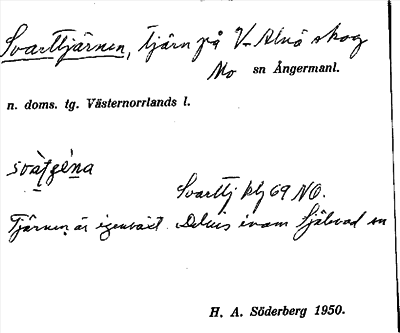 Svarttjärnen, tjärn på V. Alnö skog
Mo sn Ångermanl.
n. doms. tg. Västernorrlands l.
svàt̯ɡèn̯a
Svarttj blj 69 NO.
Tjärnen är igenväxt. Delvis inom Själevad sn
H. A. Söderberg 1950.